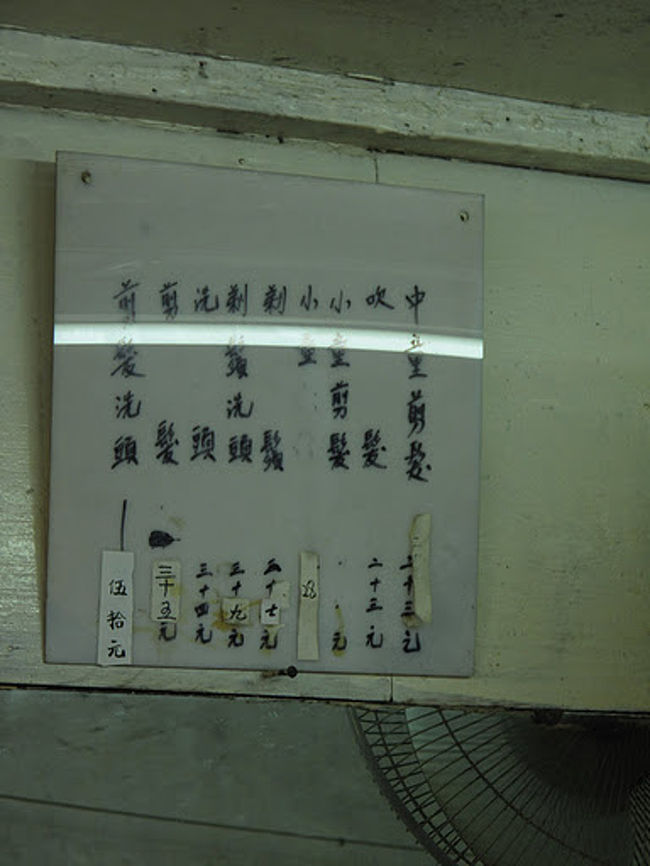 中童剪髮
吹髮 二十三元
小童剪髮 元
小童 28
剃鬚 二十七元
剃鬚洗頭 三十九元
洗頭 三十四元
剪髮 三十五元
剪髮洗頭 伍拾元